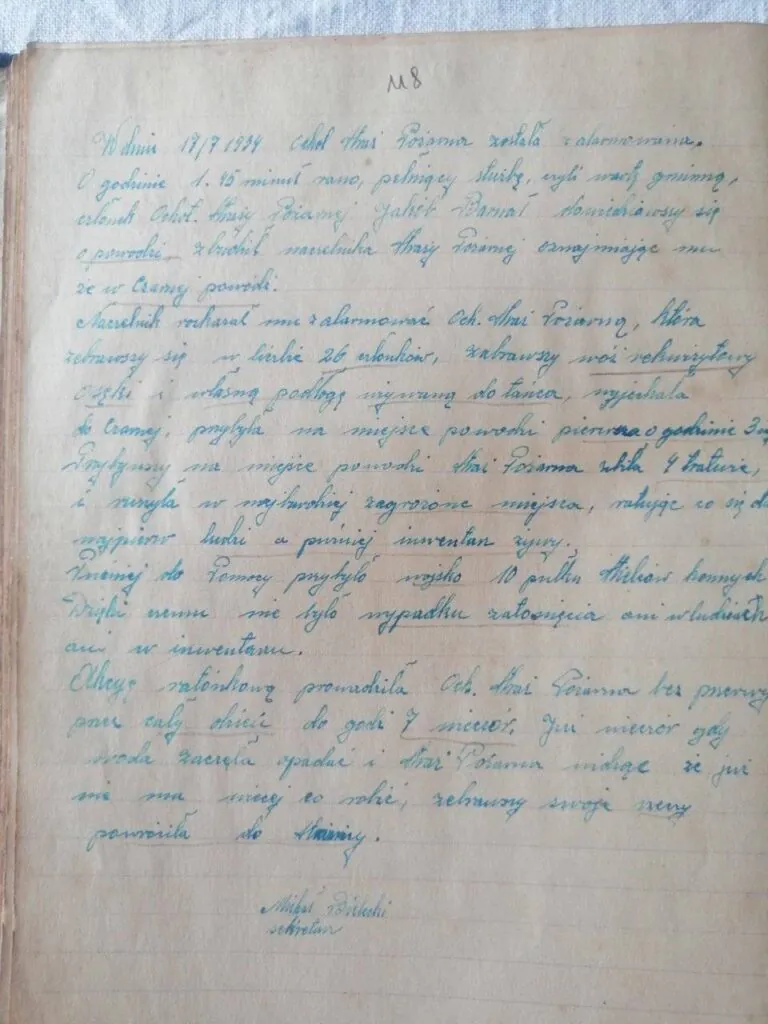 118
W dniu 17/7 1934 Ochot Straż Pożarna została zalarmowana.
O godzinie 1.45 minut rano, pełniący służbę, czyli wartę gminną,
członek Ochot. Straży Pożarnej Jakób Barnaś dowiedziawszy się
o powodzi zbudził naczelnika Straży Pożarnej oznajmiając mu
że w Czarnej powódź.
Naczelnik rozkazał mu zalarmować Och. Straż Pożarną, która
zebrawszy się w liczbie 26 członków, zabrawszy wóz rekwizytowy
osęki i własną podłogę używaną do tańca, wyjechała
do Czarnej, przybyła na miejsce powodzi pierwsza o godzinie 3
Przybywszy na miejsce powodzi Straż Pożarna zbiła 4 tratwie,
i ruszyła w najbardziej zagrożone miejsca, ratując co się da
najpierw ludzi a puźniej inwentarz żywy.
Puźniej do Pomocy przybyło wojsko 10 pułku Strzelców konnych
Dzięki czemu nie było wypadku zatonięcia ani w ludziach
ani w inwentarzu.
Akcję ratónkową prowadziła Och. Straż Pożarna bez przerwy
przez cały dzień do godz 7 wieczór. Już wieczór gdy
woda zaczęła opadać i Straż Pożarna widząc że już
nie ma więcej co robić, zebrawszy swoje rzeczy
powróciła do Strażnicy.
Michał Bielecki
sekretarz